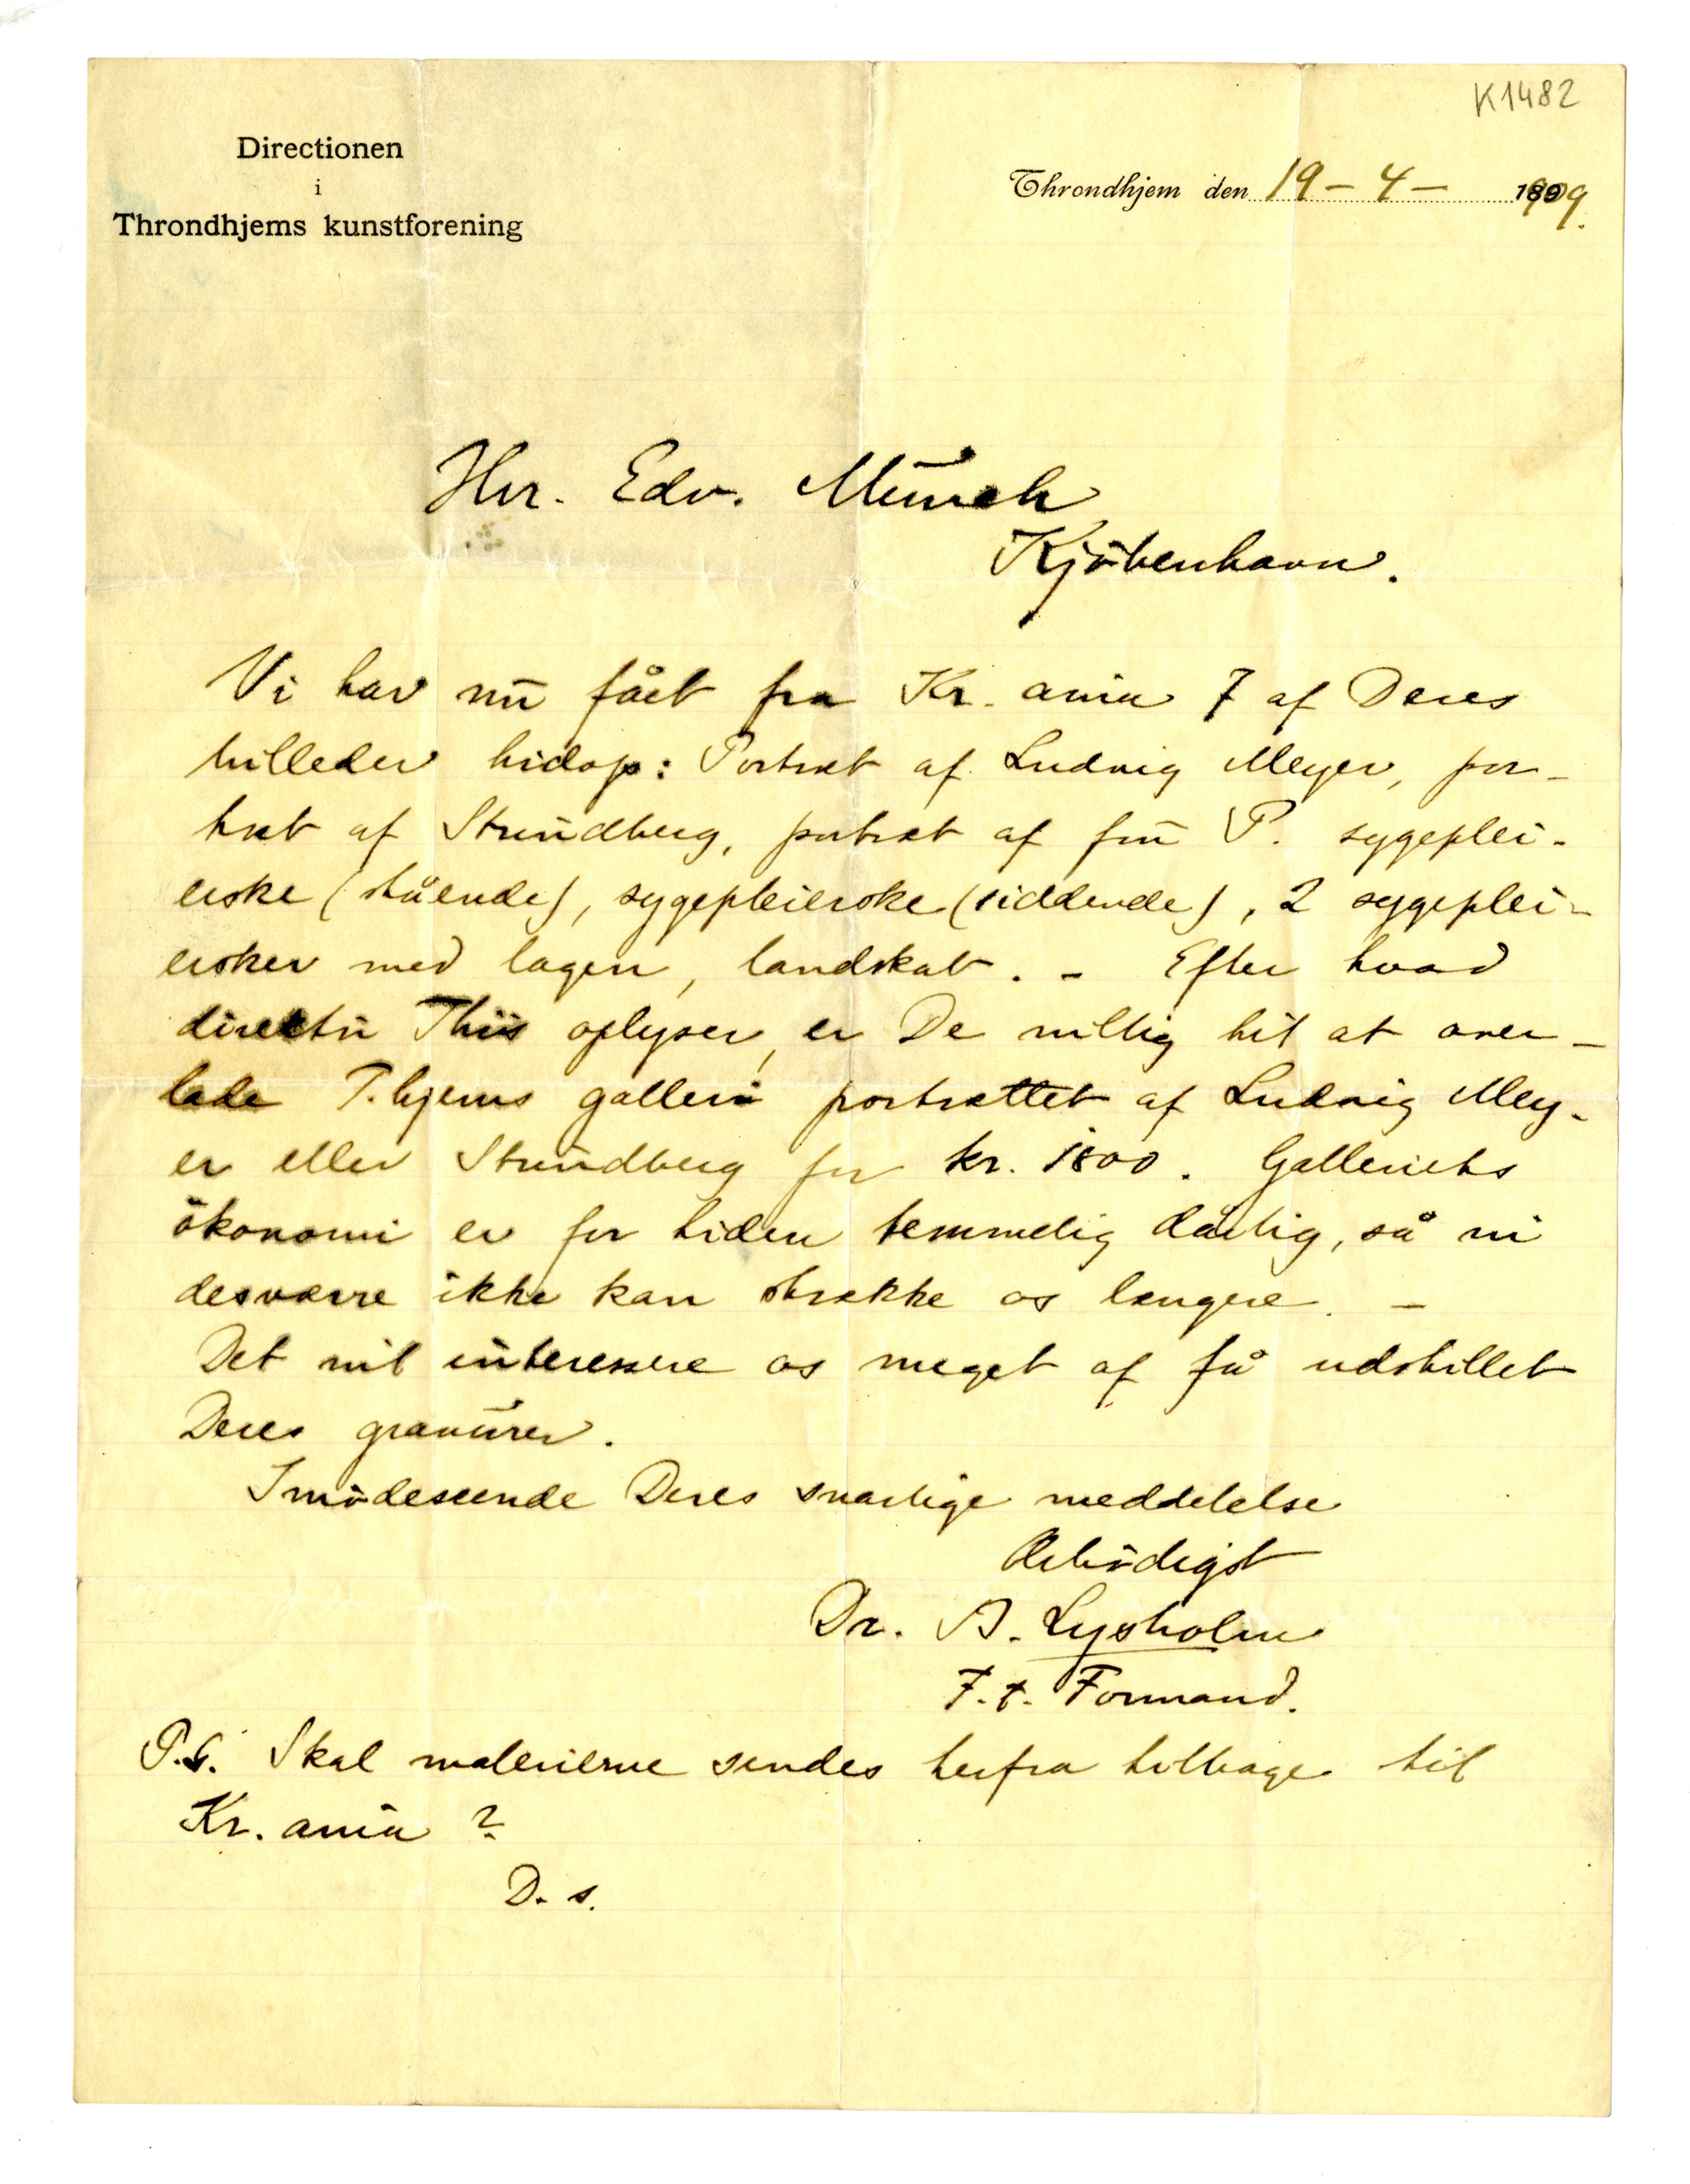 K1482
Directionen
i
Throndhjems kunstforening
Throndhjem den 19 – 4 – 1909.
Hrr. Edv. Munch
Kjöbenhavn.
Vi har nu fået fra Kr. ania 7 af Deres
billeder hidop: Portræt af Ludvig Meyer, por-
træt af Strindberg, portræt af fru P. sygeplei-
erske (stående), sygepleierske (siddende), 2 sygeplei-
ersker med lagen, landskab. – Efter hvad
direktör Thiis oplyser, er De villig til at over-
lade T.hjems galleri portrættet af Ludvig Mey-
er eller Strindberg for kr. 1800. Galleriets
ökonomi er for tiden temmelig dårlig, så vi
desværre ikke kan strække os længere. –
Det vil interessere os meget af få udstillet
Deres gravurer.
Imödeseende Deres snarlige meddelelse
Ærbödigst
Dr. A. Lysholm
F.t. Formand.
P.S. Skal malerierne sendes herfra tilbage til
Kr. ania?
D. s.